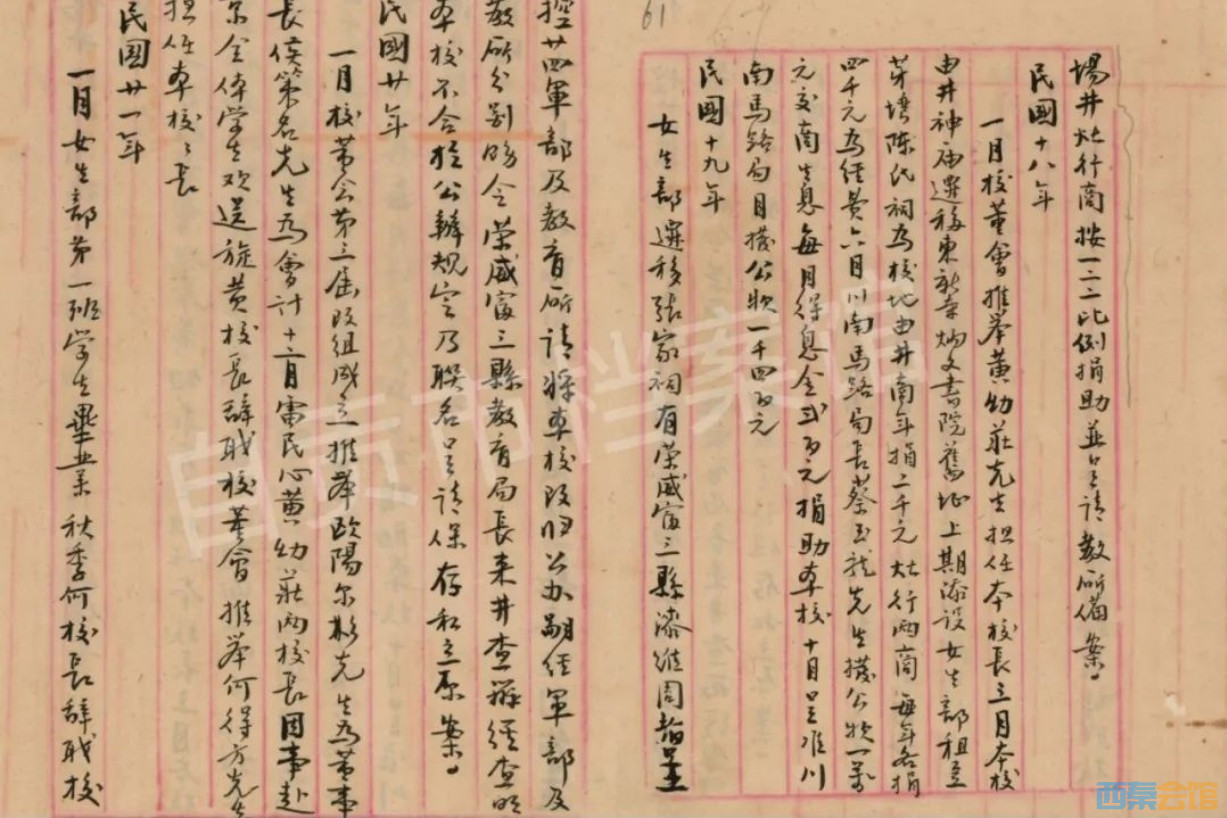 61
場井灶行商按一二二比例捐助並呈請教所備案。
民國十八年
一月校董會推舉黃幼莊先生担任本校長三月本校
由井神廟遷移東新寺炳文書院舊址上期添設女生部租立
芽塘陳氏祠為校地由井商年捐二千元灶行兩商每年各捐
四千元為經費六月川南馬路局長蔡玉龍先生撥公款一萬
元交商生息每月得息金弍百元捐助本校十月呈准川
南馬路局月撥公款一千四百元
民國十九年
女生部遷移張家祠有荣威富三縣漆維周等呈
控廿四軍部及教育所請將本校改歸公办嗣經軍部及
教所分别明令荣威富三縣教育局長来井查辦經查明
本校不合於公辦規定乃聯名呈請保存私立原案。
民國廿年
一月校董会第三屆改組成立推举欧陽尔彬先生為董事
長侯策名先生為會計十二月雷民心黄幼莊两校長因事赴
京全体学生欢送旋黄校長辞职校董會推举何得方先生
担任本校校長
民國廿一年
一月女生部第一班学生畢業秋季何校長辞职校
自贡市档案馆
西秦会馆